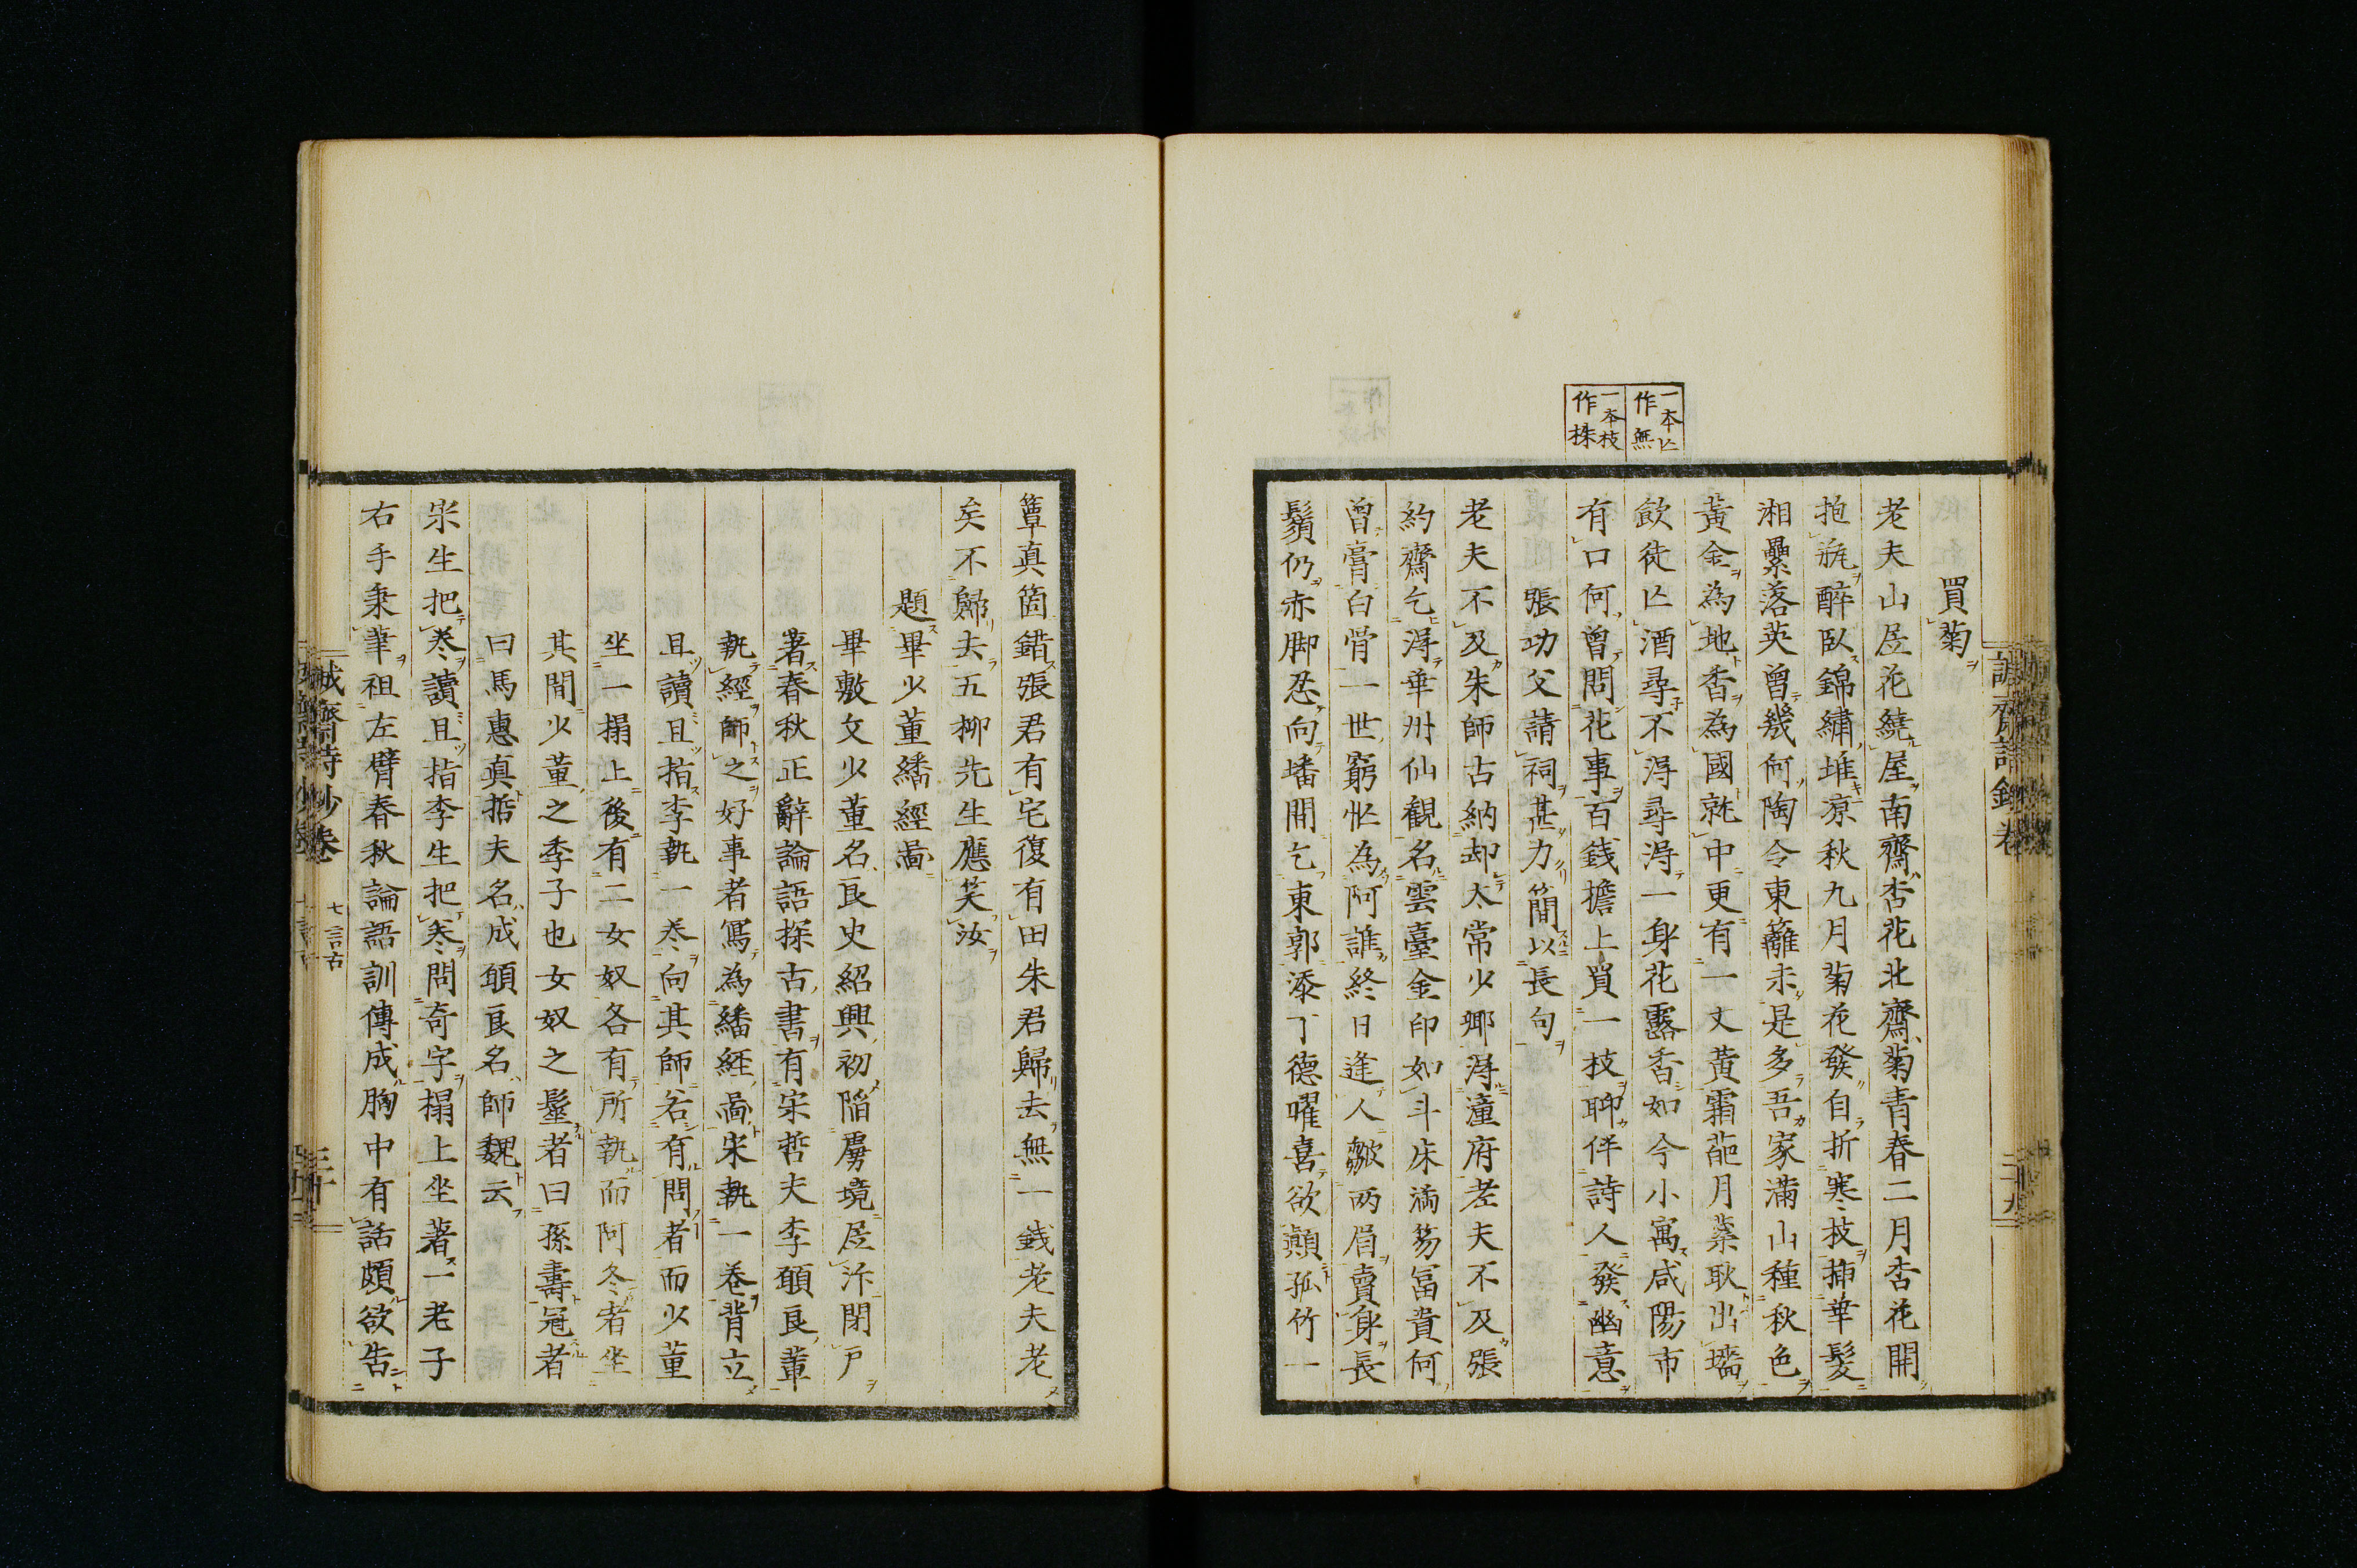 買菊
老夫山居花繞屋南齋杏花北齋菊青春二月杏花開
抱瓶醉臥錦繡堆凉秋九月菊花發自折寒枝揷華髮
湘纍落英曾幾何陶令東籬未是多吾家滿山種秋色
黃金為地香為國就中更有一丈黃霜葩月蘂耿出墻
飲徒亾酒尋不淂尋淂一身花露香如今小寓咸陽市
有口何曾問花事百錢擔上買一枝聊伴詩人發幽意
張功父請祠甚力簡以長句
老夫不及朱師古納却太常少卿淂潼府老夫不及張
約齋乞淂華州仙觀名雲臺金印如斗床滿笏冨貴何
曾膏白骨一世窮忙為阿誰終日逢人皺兩眉賣身長
鬚仍赤脚忍向墦開乞東郭添丁德曜喜欲顚孤竹一
一本亾作無
一本枝作株
誠齋詩鈔卷
二十九
簟真箇錯張君有宅復有田朱君歸去無一錢老夫老
矣不歸去五柳先生應笑汝
題畢少董繙經啚
畢敷文少董名良史紹興初陷虜境居汴閉戶
著春秋正辭論語探古書有宋哲夫李願良輩
執經師之好事者寫為繙經啚宋執一卷背立
且讀且指李執一卷向其師若有問者而少董
坐一榻上後有二女奴各有所執而阿冬者坐
其間少董之季子也女奴之髽者曰孫壽冠者
曰馬惠真哲夫名成願良名師魏云
宋生把卷讀且指李生把卷問奇字榻上坐著一老子
右手秉筆袒左臂春秋論語訓傳成胸中有話頗欲告
誠齋詩鈔卷
七言古
三十